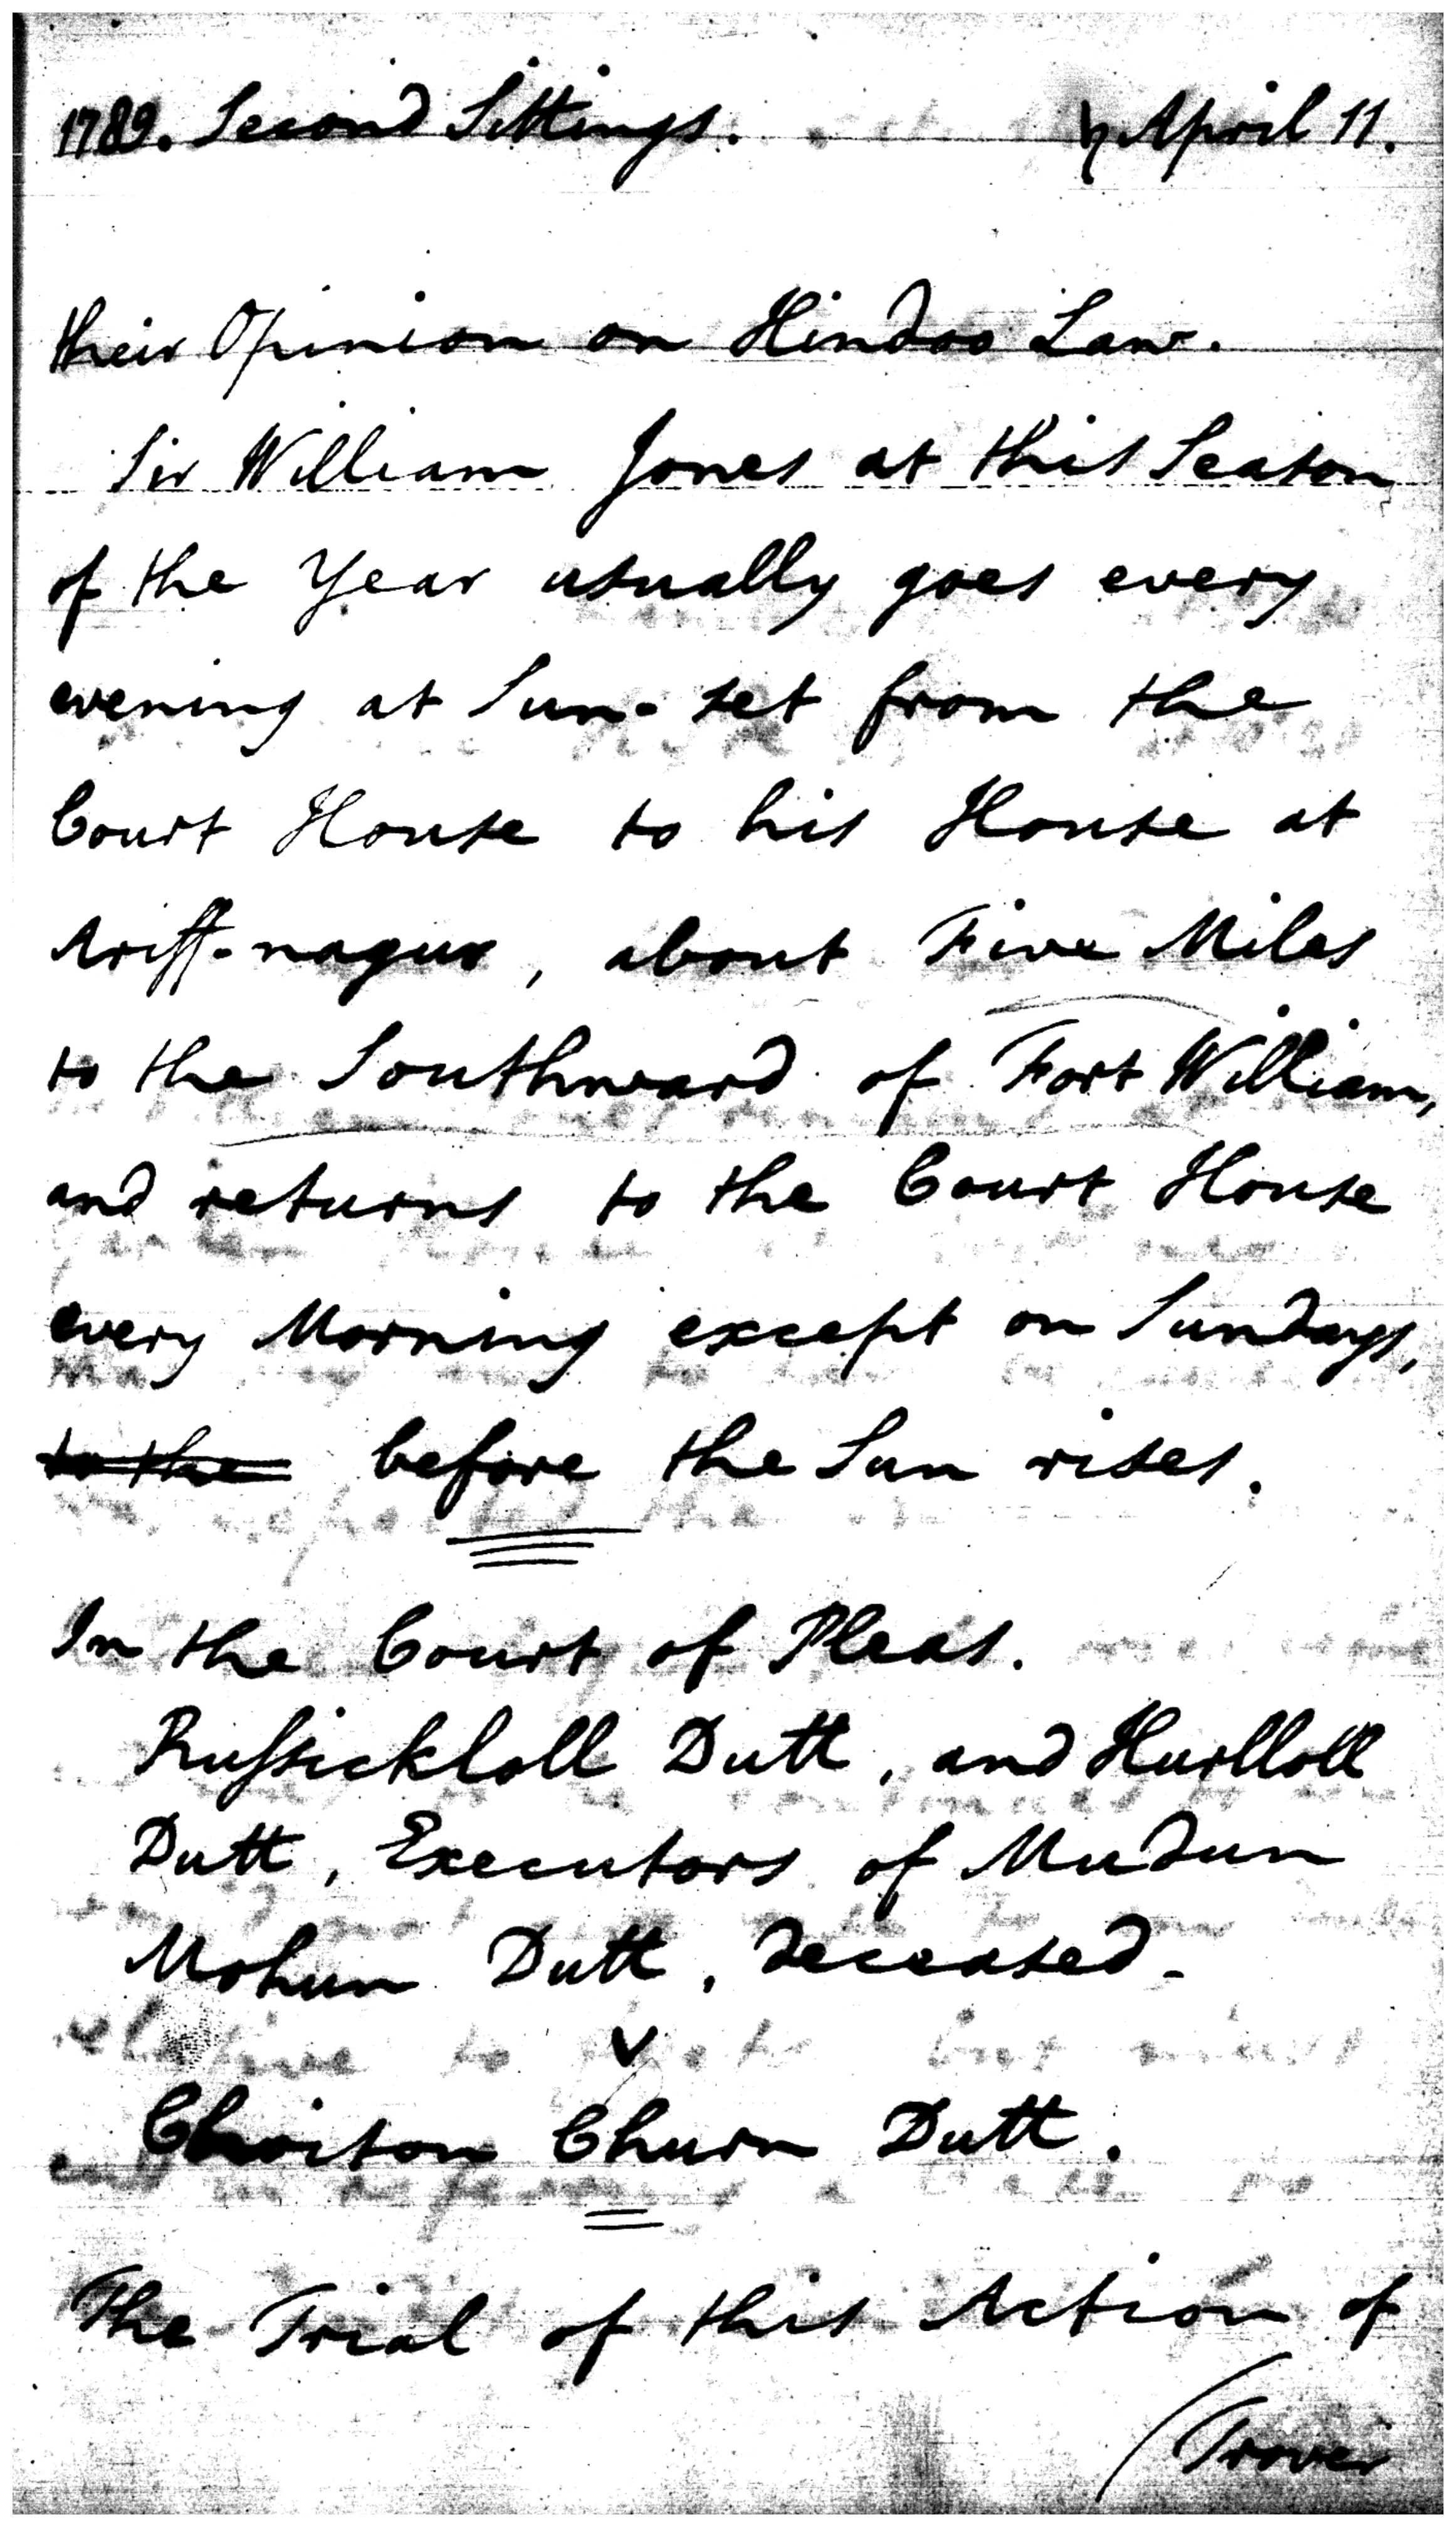 1789. Second Sittings. ♄ April 11.
their Opinion on Hindoo Law.
Sir William Jones at this Season
of the Year usually goes every
evening at Sun-set from the
Court House to his House at
Ariff-nagur, about Five Miles
to the Southward of Fort William,
and returns to the Court House
every Morning except on Sundays,
to the before the Sun rises.
In the Court of Pleas.
Ruſsickloll Dutt, and Hurlloll
Dutt, Executors of Mudun
Mohun Dutt, deceased.
v
Choiton Churn Dutt.
The Trial of this Action of
(Trover